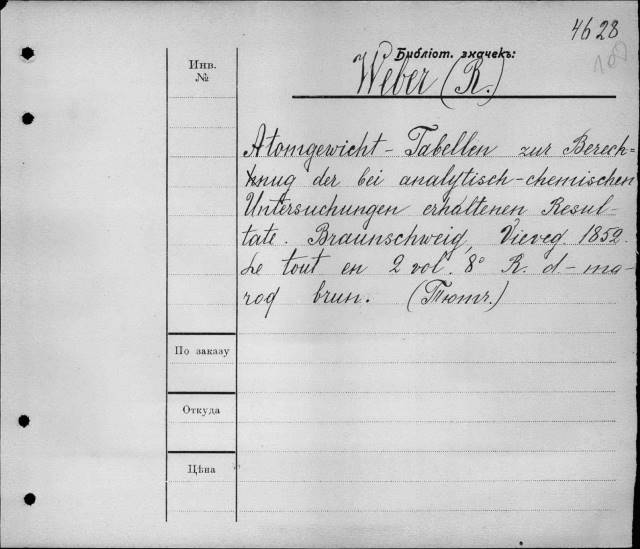 4628
100
Библіот. значекъ:
Weber (R.)
Инв.
№
Atomgewicht - Tabellen zur Berech=
nnug der bei analytisch-chemischen
Untersuchungen erhaltenen Resul-
tate. Braunschweig, Vieveg 1852.
Le tout en 2 vol. 8° R. d-ma-
roq brun. (Тютч.)
По заказу
Откуда
Цѣна